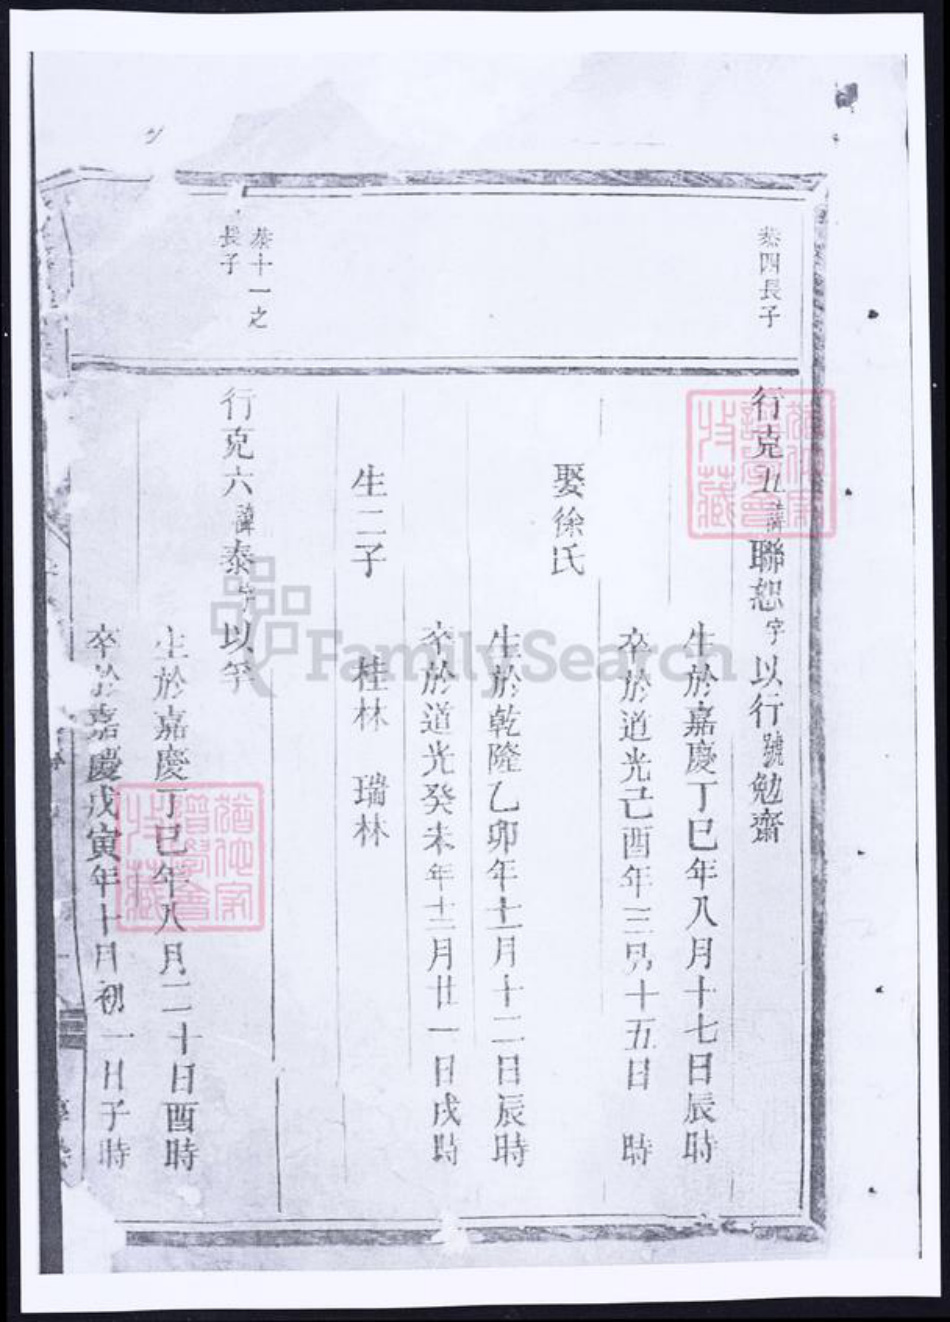 泰四長子
行克五諱聯恕字以行號勉齋
生於嘉慶丁巳年八月十七日辰時
卒於道光己酉年三月十五日 時
娶徐氏
生於乾隆乙卯年十一月十二日辰時
卒於道光癸未年十二月廿一日戌時
生二子 桂林 瑞林
泰十一之
長子
行克六諱泰字以竿
生於嘉慶丁巳年八月二十日酉時
卒於嘉慶戊寅年十月初一日子時
FamilySearch